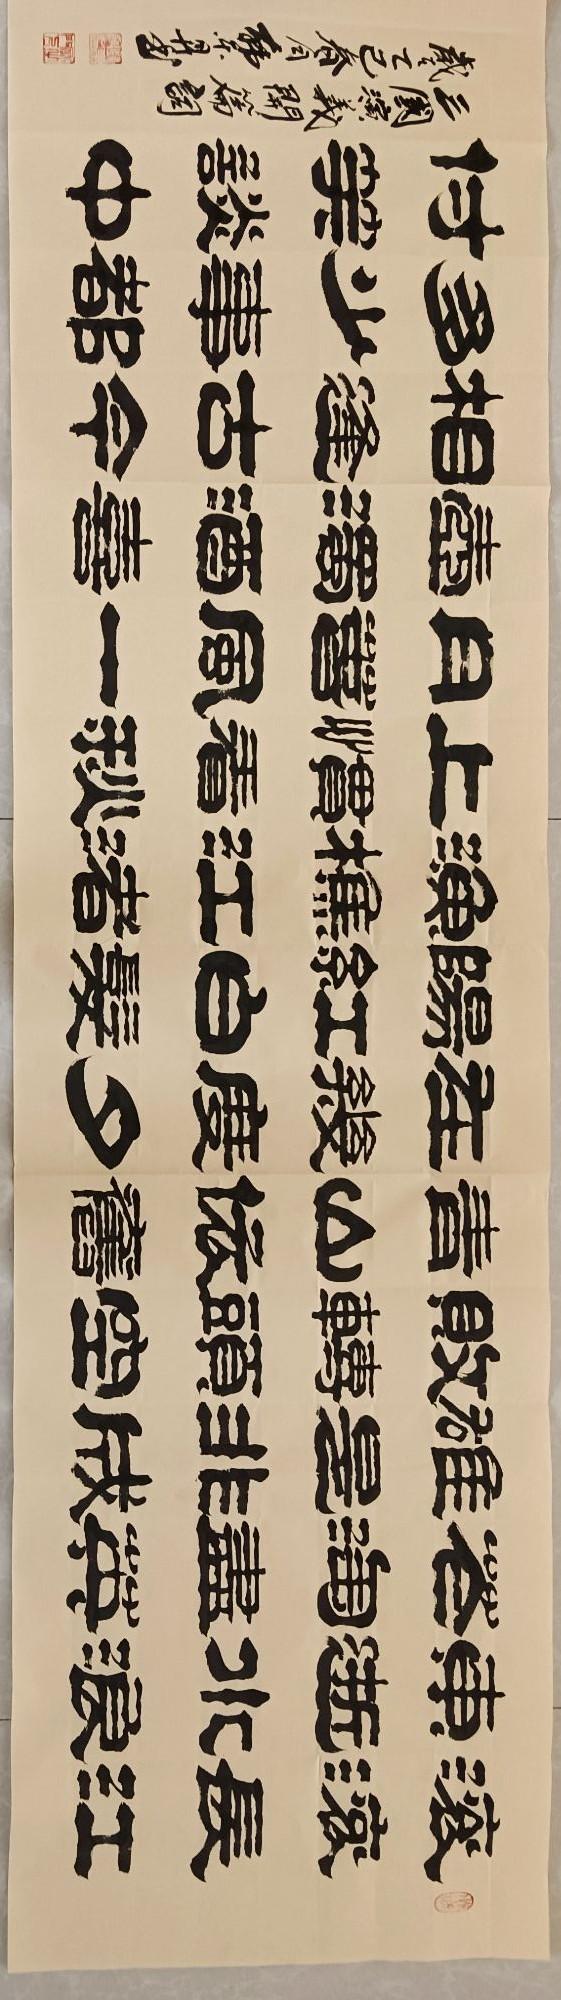 滾滾長江
東逝水浪
花淘盡英
雄是非成
敗轉頭空
青山依舊
在幾度夕
陽紅白髮
漁樵江渚
上慣看秋
月春風一
壺濁酒喜
相逢古今
多少事都
付笑談中
三國演義開篇詞
歲乙巳春書